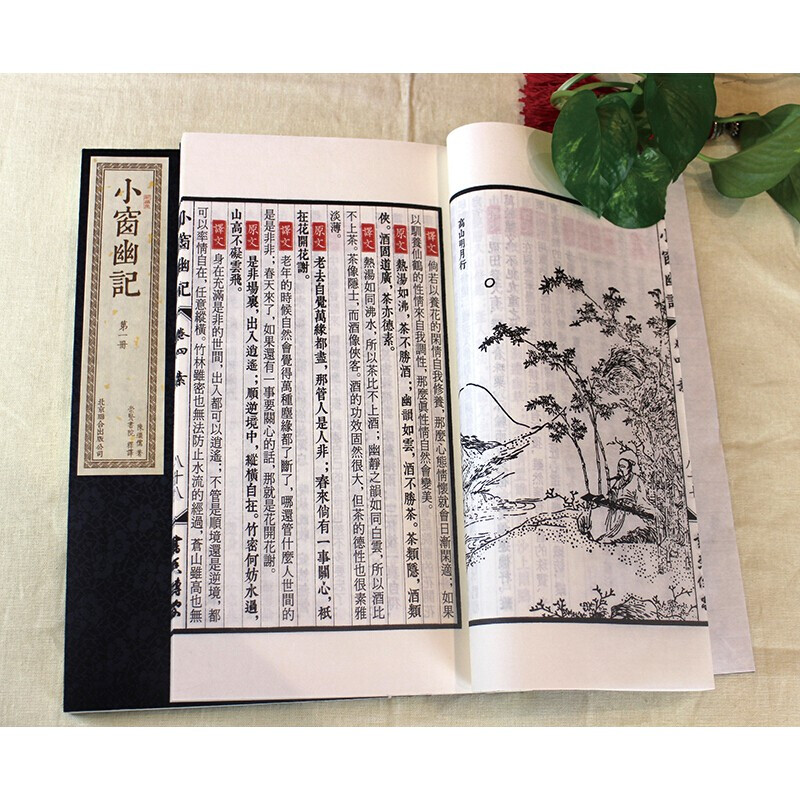 小窗幽記
第一冊
陳繼儒 著
崇賢書院 釋譯
北京聯合出版公司
高山明月行
譯文 倘若以養花的閑情自我修養，那麼心態情懷就會日漸閑適；如果
以馴養仙鶴的性情來自我調性，那麼真性情自然會變美。
原文 熱湯如沸，茶不勝酒；幽韻如雲，酒不勝茶。茶類隱，酒類
俠。酒固道廣，茶亦德素。
譯文 熱湯如同沸水，所以茶比不上酒；幽靜之韻如同白雲，所以酒比
不上茶。茶像隱士，而酒像俠客。酒的功效固然很大，但茶的德性也很素雅
淡薄。
原文 老去自覺萬緣都盡，那管人是人非；春來倘有一事關心，衹
在花開花謝。
譯文 老年的時候自然會覺得萬種塵緣都了斷了，哪還管什麼人世間的
是是非非；春天來了，如果還有一事要關心的話，那就是花開花謝。
原文 是非場裏，出入逍遙；順逆境中，縱橫自在。竹密何妨水過，
山高不礙雲飛。
譯文 身在充滿是非的世間，出入都可以逍遙；不管是順境還是逆境，都
可以率情自在，任意縱橫。竹林雖密也無法防止水流的經過，蒼山雖高也無
小窗幽記 卷四 素 八十八